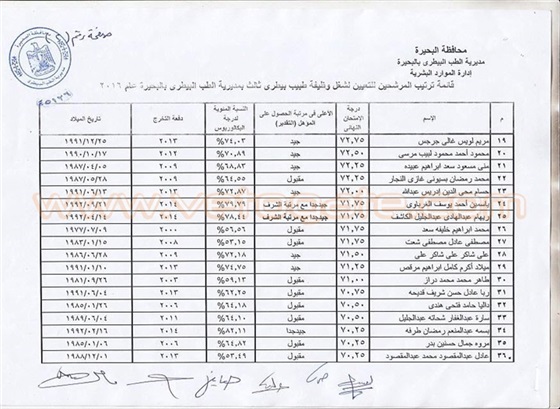 صفحة رقم (٢)
محافظة البحيرة
مديرية الطب البيطرى بالبحيرة
إدارة الموارد البشرية
قائمة ترتيب المرشحين للتعيين لشغل وظيفة طبيب بيطرى ثالث بمديرية الطب البيطرى بالبحيرة عام ٢٠١٦
م الإسم درجة الإمتحان النهائى الأعلى فى مرتبة الحصول على المؤهل (التقدير) النسبة المئوية لدرجة البكالوريوس دفعة التخرج تاريخ الميلاد
١٩ مريم لويس غالى جرجس ٧٢,٧٥ جيد ٧٤,٠٣% ٢٠١٣ ١٩٩١/١٢/٢٥
٢٠ محمود أحمد محمود لبيب مرسى ٧٢,٥٠ جيد ٧٠,٨٩% ٢٠١٣ ١٩٩٠/١٠/١٧
٢١ منى مسعود سعد ابراهيم عبيده ٧٢,٢٥ جيد ٦٨,٨٣% ٢٠٠٩ ١٩٨٧/٠٤/٠٥
٢٢ محمد رمضان بسيونى غازى النجار ٧٢,٢٥ مقبول ٦٤,٥٥% ٢٠٠٩ ١٩٨٧/٠٥/٢٨
٢٣ حسام محى الدين إدريس عبدالله ٧٢,٠٠ جيد ٧٢,٨٧% ٢٠١٣ ١٩٩١/٠٦/١٣
٢٤ ياسين أحمد يوسف المرباوى ٧١,٧٥ جيدجدا مع مرتبة الشرف ٧٩,٧٦% ٢٠١٤ ١٩٩٢/٠٩/٢١
٢٥ ريهام عبدالهادى عبدالجليل الكاشف ٧١,٧٥ جيدجدا مع مرتبة الشرف ٧٨,٤٤% ٢٠١٤ ١٩٩٢/٠٤/١٤
٢٦ محمد ابراهيم خليفه سعد ٧١,٧٥ مقبول ٥٦,٥٦% ٢٠٠٠ ١٩٧٧/٠٧/٠٩
٢٧ مصطفى عادل مصطفى شعت ٧١,٧٥ مقبول ٥٣,١٥% ٢٠٠٨ ١٩٨٣/٠١/١٥
٢٨ على شاكر على شاكر على ٧١,٥٠ جيد ٦٨,٧١% ٢٠٠٩ ١٩٨٦/٠٦/٢٨
٢٩ ميلاد أكرم كامل ابراهيم مرقص ٧١,٢٥ جيد ٧٤,٧٥% ٢٠١٣ ١٩٩١/٠١/١٠
٣٠ طاهر محمد محمد دراز ٧١,٠٠ مقبول ٦٠,٣١% ٢٠١١ ١٩٨٠/٠٩/١٢
٣١ ريا عادل حسن شريف قديحه ٧٠,٧٥ مقبول ٦٢,٢٥% ٢٠١٣ ١٩٩١/٠٦/٠٤
٣٢ داليا حامد فتحى هندى ٧٠,٥٠ مقبول ٦٤,١٨% ٢٠٠٦ ١٩٨٥/٠١/٢٦
٣٣ سارة عبدالغفار شحاته عبدالجليل ٧٠,٥٠ مقبول ٦٤,١٠% ٢٠١١ ١٩٨٩/٠٦/٠٤
٣٤ بسمه عبدالمنعم رمضان طرفه ٧٠,٢٥ جيدجدا ٨٢,١١% ٢٠١٤ ١٩٩٢/٠٢/١٦
٣٥ مروه جمال حسنين بدر ٧٠,٢٥ مقبول ٦٤,٦٢% ٢٠٠٦ ١٩٨٥/٠١/٠٦
٣٦ عادل عبدالمقصود محمد عبدالمقصود ٧٠,٢٥ مقبول ٥٣,٤٩% ٢٠١٣ ١٩٨٨/١٢/٠١